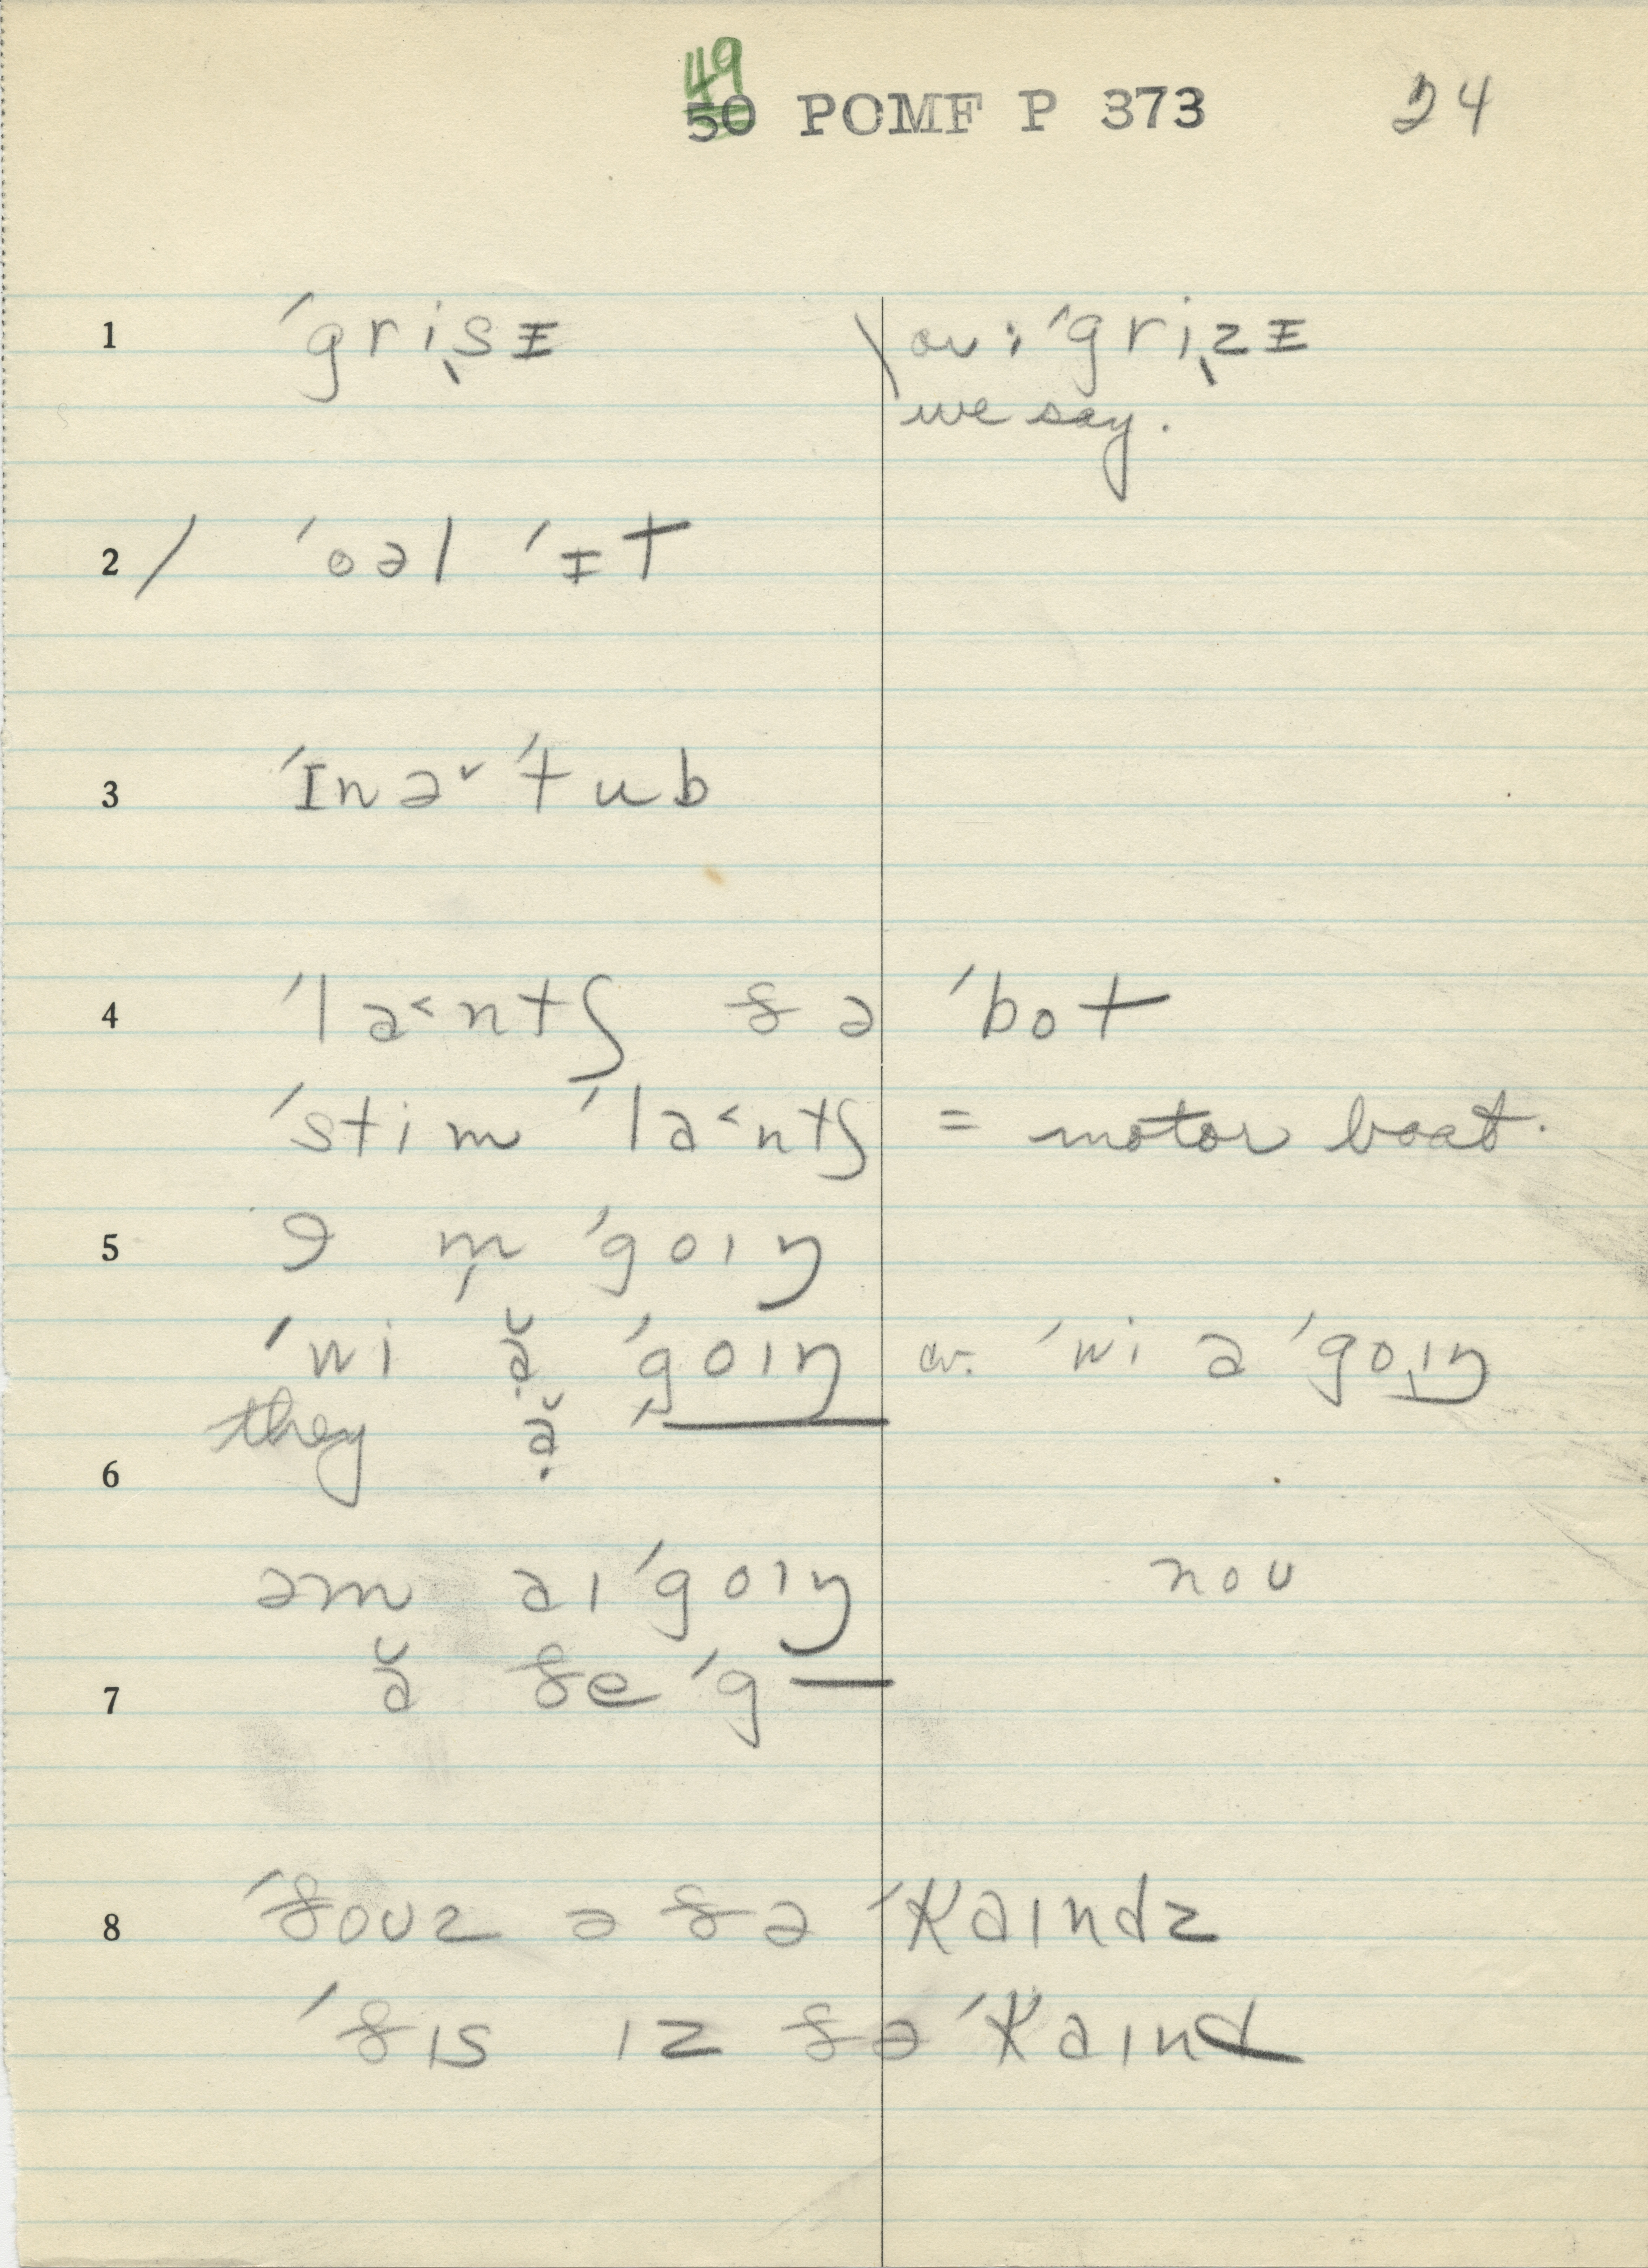 49
50 POMF P 373 24
1 ˈgri̜sɪ ov : ˈgri̜zɪ
we say.
2 / ˈoəl ˈɪt
3 ˈɪnə˅ ˈtub
4 ˈla˂ntʃ ðə ˈbot
ˈstim ˈla˂ntʃ = motor boat.
5 ɑ m̩ ˈgoɪŋ
ˈwi ə̣̆ ˈgoɪŋ or. ˈwi ə ˈgoɪŋ
they ə̣̆ ˈ——
6
əm aɪ ˈgoɪŋ noʊ
7 ə̆ ðe ˈg—
8 ˈðoʊz ə ðə ˈkaɪndz
ˈðɪs ɪz ðə ˈkaɪnd